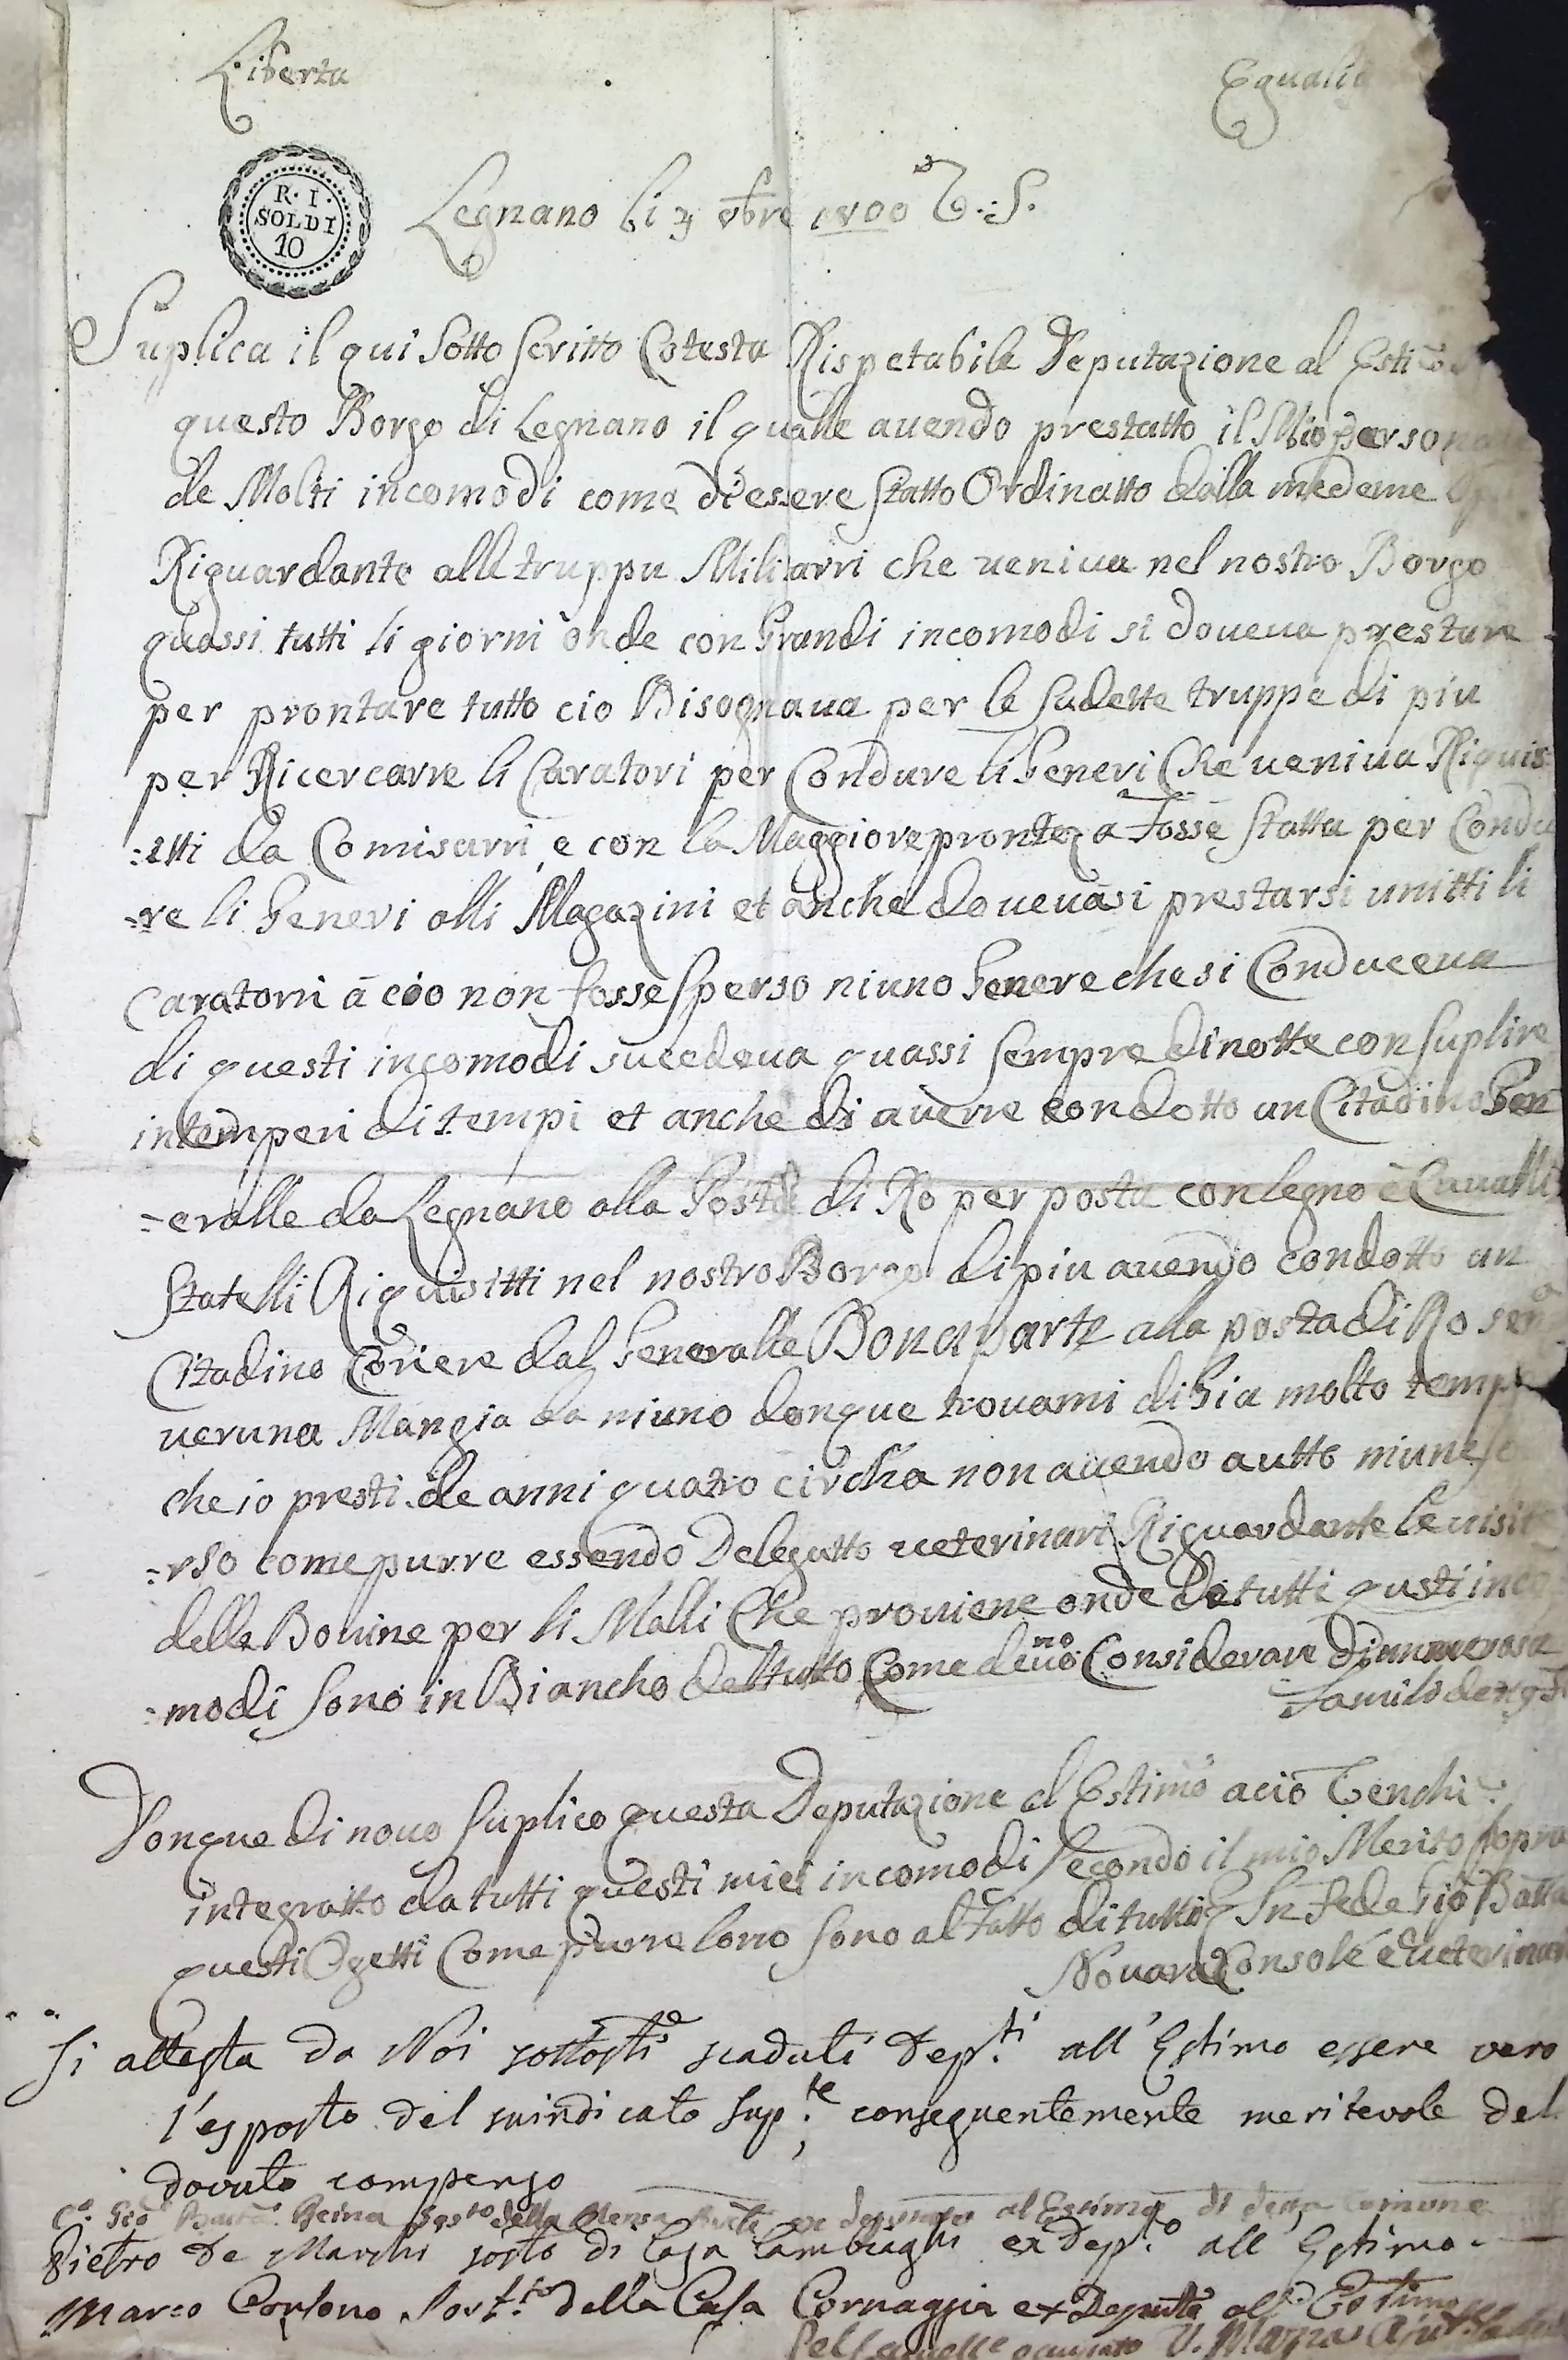 Liberta Egualig
R. I.
SOLDI
10
Legnano li 4 1800
Suplica il qui Sotto Scritto Cotesta Rispetabile Deputazione al
questo Borgo di Legnano il qualle auendo prestatto il Mio
de Molti incomodi come di essere Statto Ordinatto dalla medeme
Riguardante alle truppa Militarri che veniua nel nostro Borgo
quassi tutti li giorni onde con Grandi incomodi si doueua prestare
per prontare tutto cio Bisognaua per le Sudette truppe di piu
per Ricercarre li Caratori per Condure li Generi Che ueniua Riquis
=itti da Comisarri e con la Maggiore pronteza Fosse Statta per Condu
=re li Generi alli Magazini et anche doueuasi prestarsi unitti li
Caratorri a cio non fosse Sperso niuno Genere che si Conduceua
di questi incomodi sucedeua quassi Sempre di notte con Suplire
intemperi di tempi et anche di auerre condotto un Citadino Gen
=eralle da Legnano alla Posta di Ro per posta con legno e Caualli
Statelli Riquisitti nel nostro Borgo di piu auendo condotto un
Citadino Coriere dal Generalle Bonaparte alla posta di Ro
ueruna Mangia da niuno donque trouami di Gia molto temp
che io presti de anni quatro circha non auendo autto
=rso come purre essendo Delegatto ueterinari Riguardante le
delle Bouine per li Malli Che prouiene onde de tutti questi inco
=modi Sono in Biancho del tutto Come deuono Considerare di numerosa
Donque di nouo Suplico questa Deputazione al Estimo acio
integratto da tutti questi miei incomodi Secondo il mio Merito Sopra
questi Ogetti Come purre loro Sono al Fatto di tutto In Fede Gio Batta
Nouara Console e ueterinar
Si attesta da Noi scaduti Dep.ti all'Estimo essere vero
l'esposto del suindicato Sup.te conseguentemente meritevole del
dovuto compenso
C.o Gio Reina Sost.o della Mensa al Estimo di detta Comune
Pietro De Marchi sosto di Casa ex Dep.o all'Estimo
Marco della Casa Cornaggia ex Deputa all Estimo